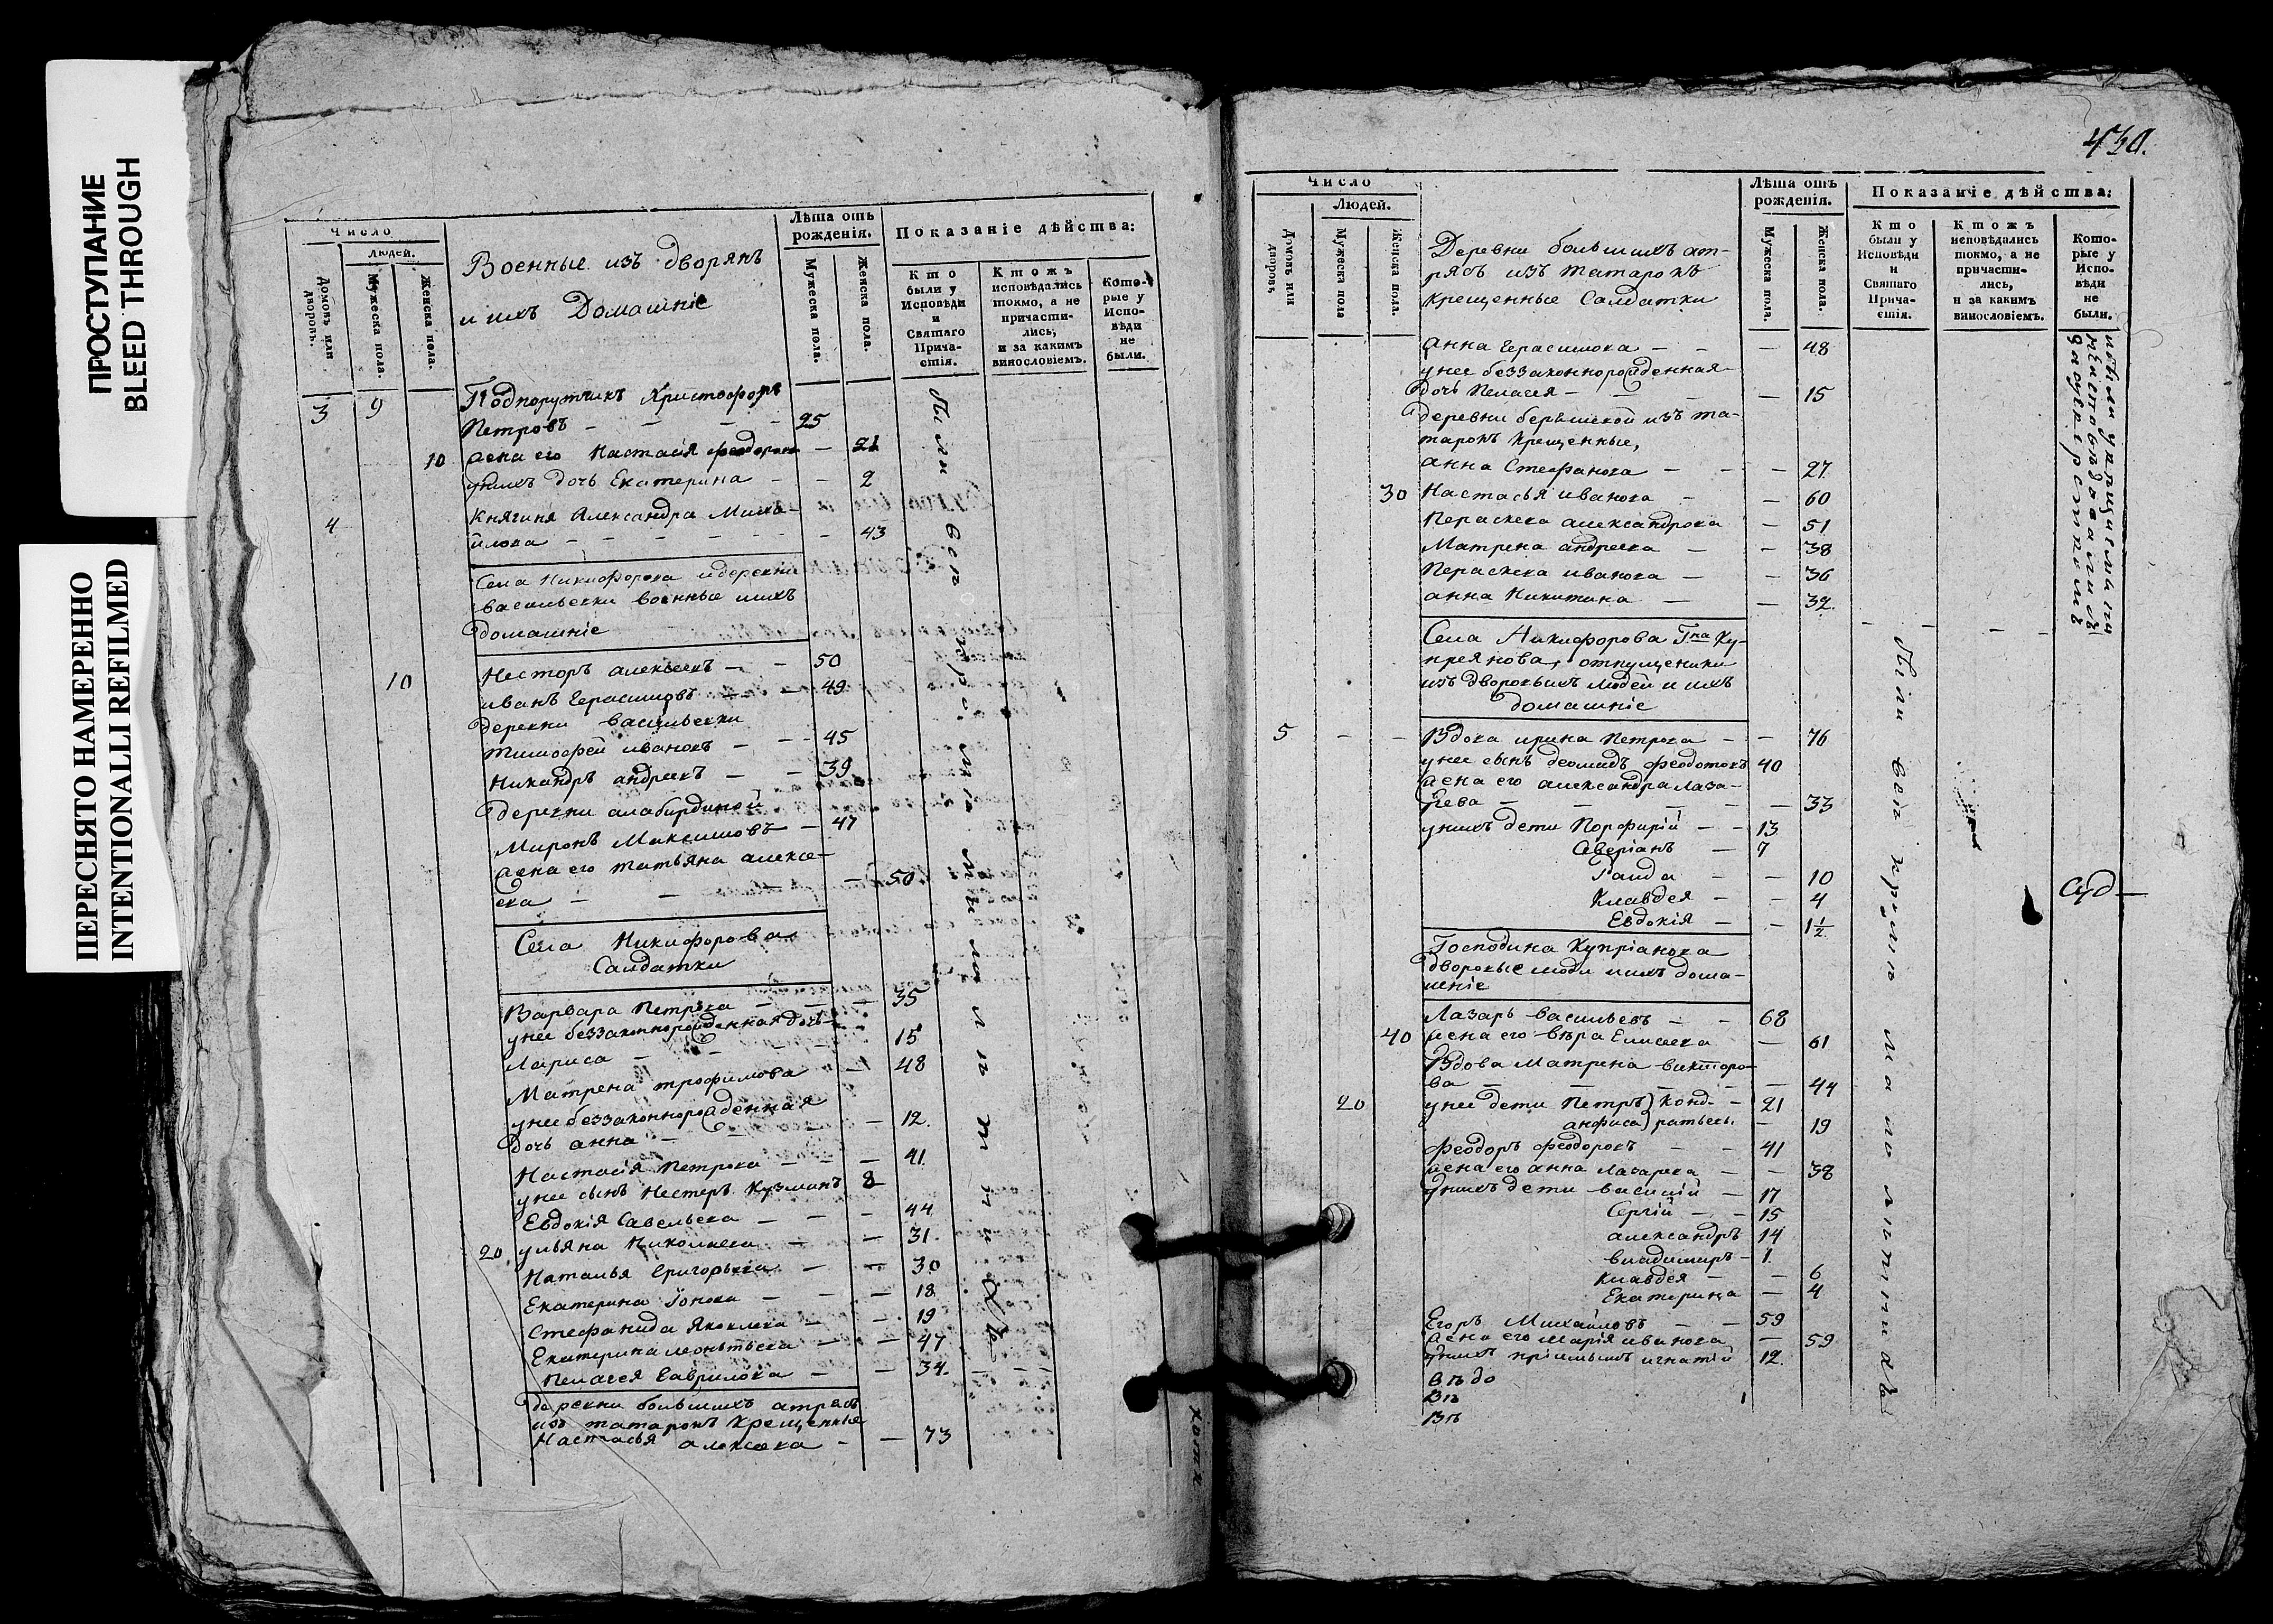 ПРОСТУПАНИЕ
BLEED THROUGH
ПЕРЕСНЯТО НАМЕРЕННО
INTENTIONALLI REFILMED
Число
Людей.
Домовъ или дворовъ.
Мужеска пола.
Женска пола.
Военные изъ дворянъ
и ихъ Домашніе
Лѣта отъ рожденія.
Мужеска пола.
Женска пола.
Показаніе дѣйства:
Кто были у Исповѣди и Святаго Прича-стія.
Ктожъ исповѣдались токмо, а не причасти-лись, и за какимъ винословіемъ.
Кото-рые у Испо-вѣди не были.
3 9 Подпорутчикъ Христофоръ
Петровъ — — — — 25
10 жена его Настасія феодорова — 21
унихъ дочь Екатерина — — 2
4 Княгиня Александра Миха-
йлова — — — — — — 43
Села Никифорова идеревни
васильевки военные иихъ
домашніе
10 Несторъ алексеевъ — — 50
иванъ Герасимовъ — — 49
деревни васильевки
тимофей ивановъ — — 45
Никандръ андреевъ — — 39
деревни алабирдиной
Миронъ Максимовъ — 47
жена его татьяна алексе-
ева — — — 50
Села Никифорова
Салдатки
Варвара Петрова — — — 35
унее беззаконнорожденная дочь
Лариса — — — 15
Матрена трофимова — 48
унее беззаконнорожденная
дочь анна — — — 12.
Настасія Петрова — — — 41.
унее сынъ Нестеръ Кузминъ 8
Евдокія Савельева — — — 44
20. ульяна Николаева — — 31.
Наталья Григорьева — — 30
Екатерина Іонова — — — 18
Стефанида Яковлева — — 19
Екатерина леонтьева — — 47
Пелагея Гаврилова — — 34.
деревни большихъ атрясъ
изъ татарокъ Крещенные
Настасья алексеева — — 73
были все при моли
430.
Число
Людей.
Домовъ или дворовъ.
Мужеска пола
Женска пола.
Деревни большихъ ат-
рясъ изъ татарокъ
крещенные Салдатки
Лѣта отъ рожденія.
Мужеска пола.
Женска пола.
Показаніе дѣйства:
Кто были у Исповѣди и Святаго Прича-стія.
Ктожъ исповѣдались токмо, а не причасти-лись, и за какимъ винословіемъ.
Кото-рые у Испо-вѣди не были.
анна Герасимова — — — 48
унее беззаконнорожденная
дочь Пелагея — — — 15
деревни берлинской изъ та-
тарокъ Крещенные,
анна Стефанова — — — 27.
30 Настасья иванова — — 60
Пераскева александрова — 51
Матрена андреева — — 38
Пераскева иванова — — 36
анна Никитина — — 32.
Села Никифорова Гна Ку-
преянова, отпущеники
изъ дворовыхъ людей и ихъ
домашніе
5 — — Вдова ирина Петрова — — 76
унее сынъ деомидъ феодотовъ 40
жена его александра Лаза-
рева — — — — 33
унихъ дети Порфирій — — 13
Северіанъ — 7
Раида — — 10
Клавдея — — 4
Евдокія — — 1 1/2
Господина Купріанова
дворовые люди иихъ дома-
шніе
Лазарь васильевъ — — 68
40 жена его вѣра Елисеева — 61
Вдова Матрена викторо-
ва — — — — 44
20 унее дети Петръ) Конд- — 21
анфиса) ратьевы. — 19
феодоръ феодоровъ — — 41
жена его анна лазарева — — 38
унихъ дети василій — 17
Сергій — — 15
александръ 14
владимиръ — 1.
Клавдея — — 6
Екатерина — 4
Егоръ Михайловъ — — 59
жена его Марія иванова — 59
унихъ пріимышъ игнатій 12.
были все при